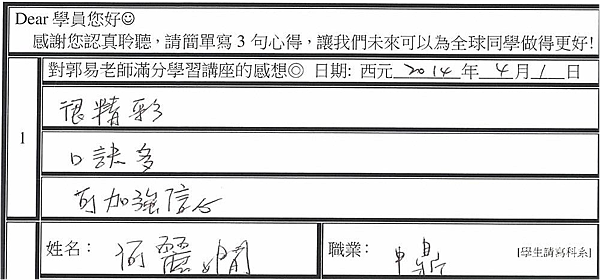 Dear 學員您好☺
感謝您認真聆聽，請簡單寫 3 句心得，讓我們未來可以為全球同學做得更好!
對郭易老師滿分學習講座的感想◎ 日期: 西元 2014 年 4 月 1 日
1
很精彩
口訣多
可加強信心
姓名： 何麗嫻
職業： 中鼎 [學生請寫科系]